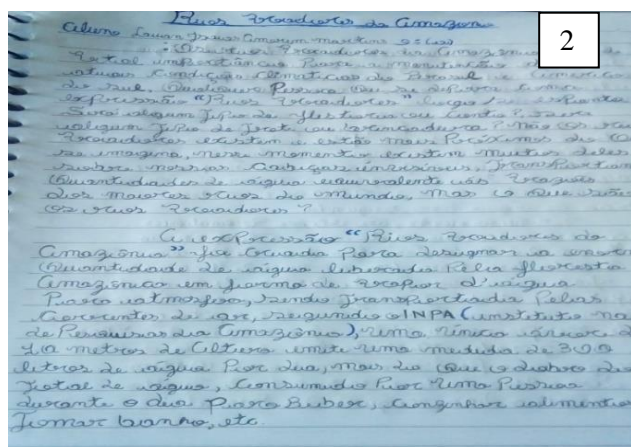 Rios Voadores da Amazonia
Aluno Lauan Martins
2
Os Rios Voadores da Amazônia
total importância Para a manutenção
atuais Condição Climaticas do Brasil e America
do sul. Qualquer Pessoa Que se depara Com a
expressão "Rios Voadores" logo se espanta
Será algum Tipo de História ou Conto?, sera
algum Tipo de Trote ou brincadeira? Não os rios
Voadores existem e estão mais Próximos do Que
se imagina, nesse momento existem muitos deles
sobre nossas Cabeças invisíveis, Transportam
Quantidades de água equivalente as Vazões
dos maiores rios do mundo, mas o Que são
os rios Voadores?
A expressão "Rios Voadores da
Amazônia" foi Criada Para designar a enorme
Quantidade de água liberada Pela floresta
Amazônica em forma de Vapor d'água
Para atmosfera, sendo Transportada Pelas
Correntes de ar, segundo o INPA (instituto na
de Pesquisas da Amazônia), uma única árvore de
10 metros de Altura emite uma media de 300
litros de água Por dia, mais do Que o dobro do
Total de água, Consumida Por uma Pessoa
durante o dia Para Beber, Cozinhar alimentos
Tomar banho, etc.